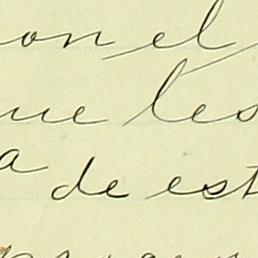 on el
ue les
a de est